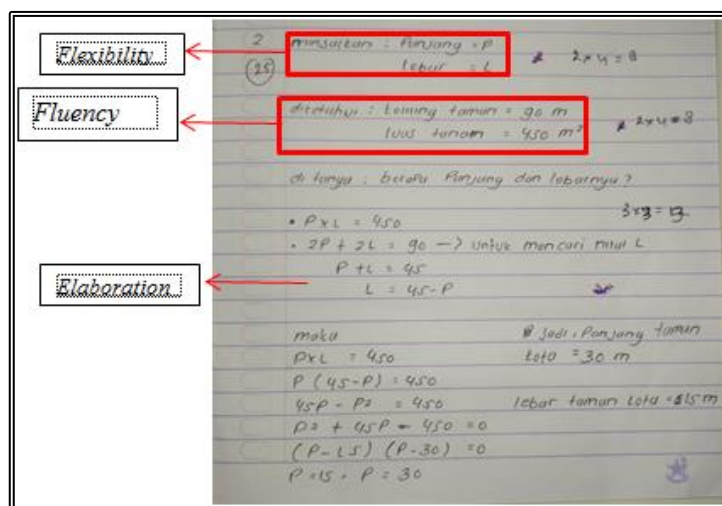 Flexibility
Fluency
Elaboration
2
25
misalkan : Panjang = P
lebar = L
2 x 4 = 8
diketahui : keliling taman = 90 m
luas taman = 450 m²
2 x 4 = 8
di tanya : berapa Panjang dan lebarnya?
• P x L = 450
• 2P + 2L = 90 -> untuk mencari nilai L
P + L = 45
L = 45 - P
maka
P x L = 450
P (45 - P) = 450
45P - P² = 450
P² + 45P - 450 = 0
(P - 15) (P - 30) = 0
P = 15 . P = 30
Jadi, Panjang taman
kota = 30 m
lebar taman kota = 15 m